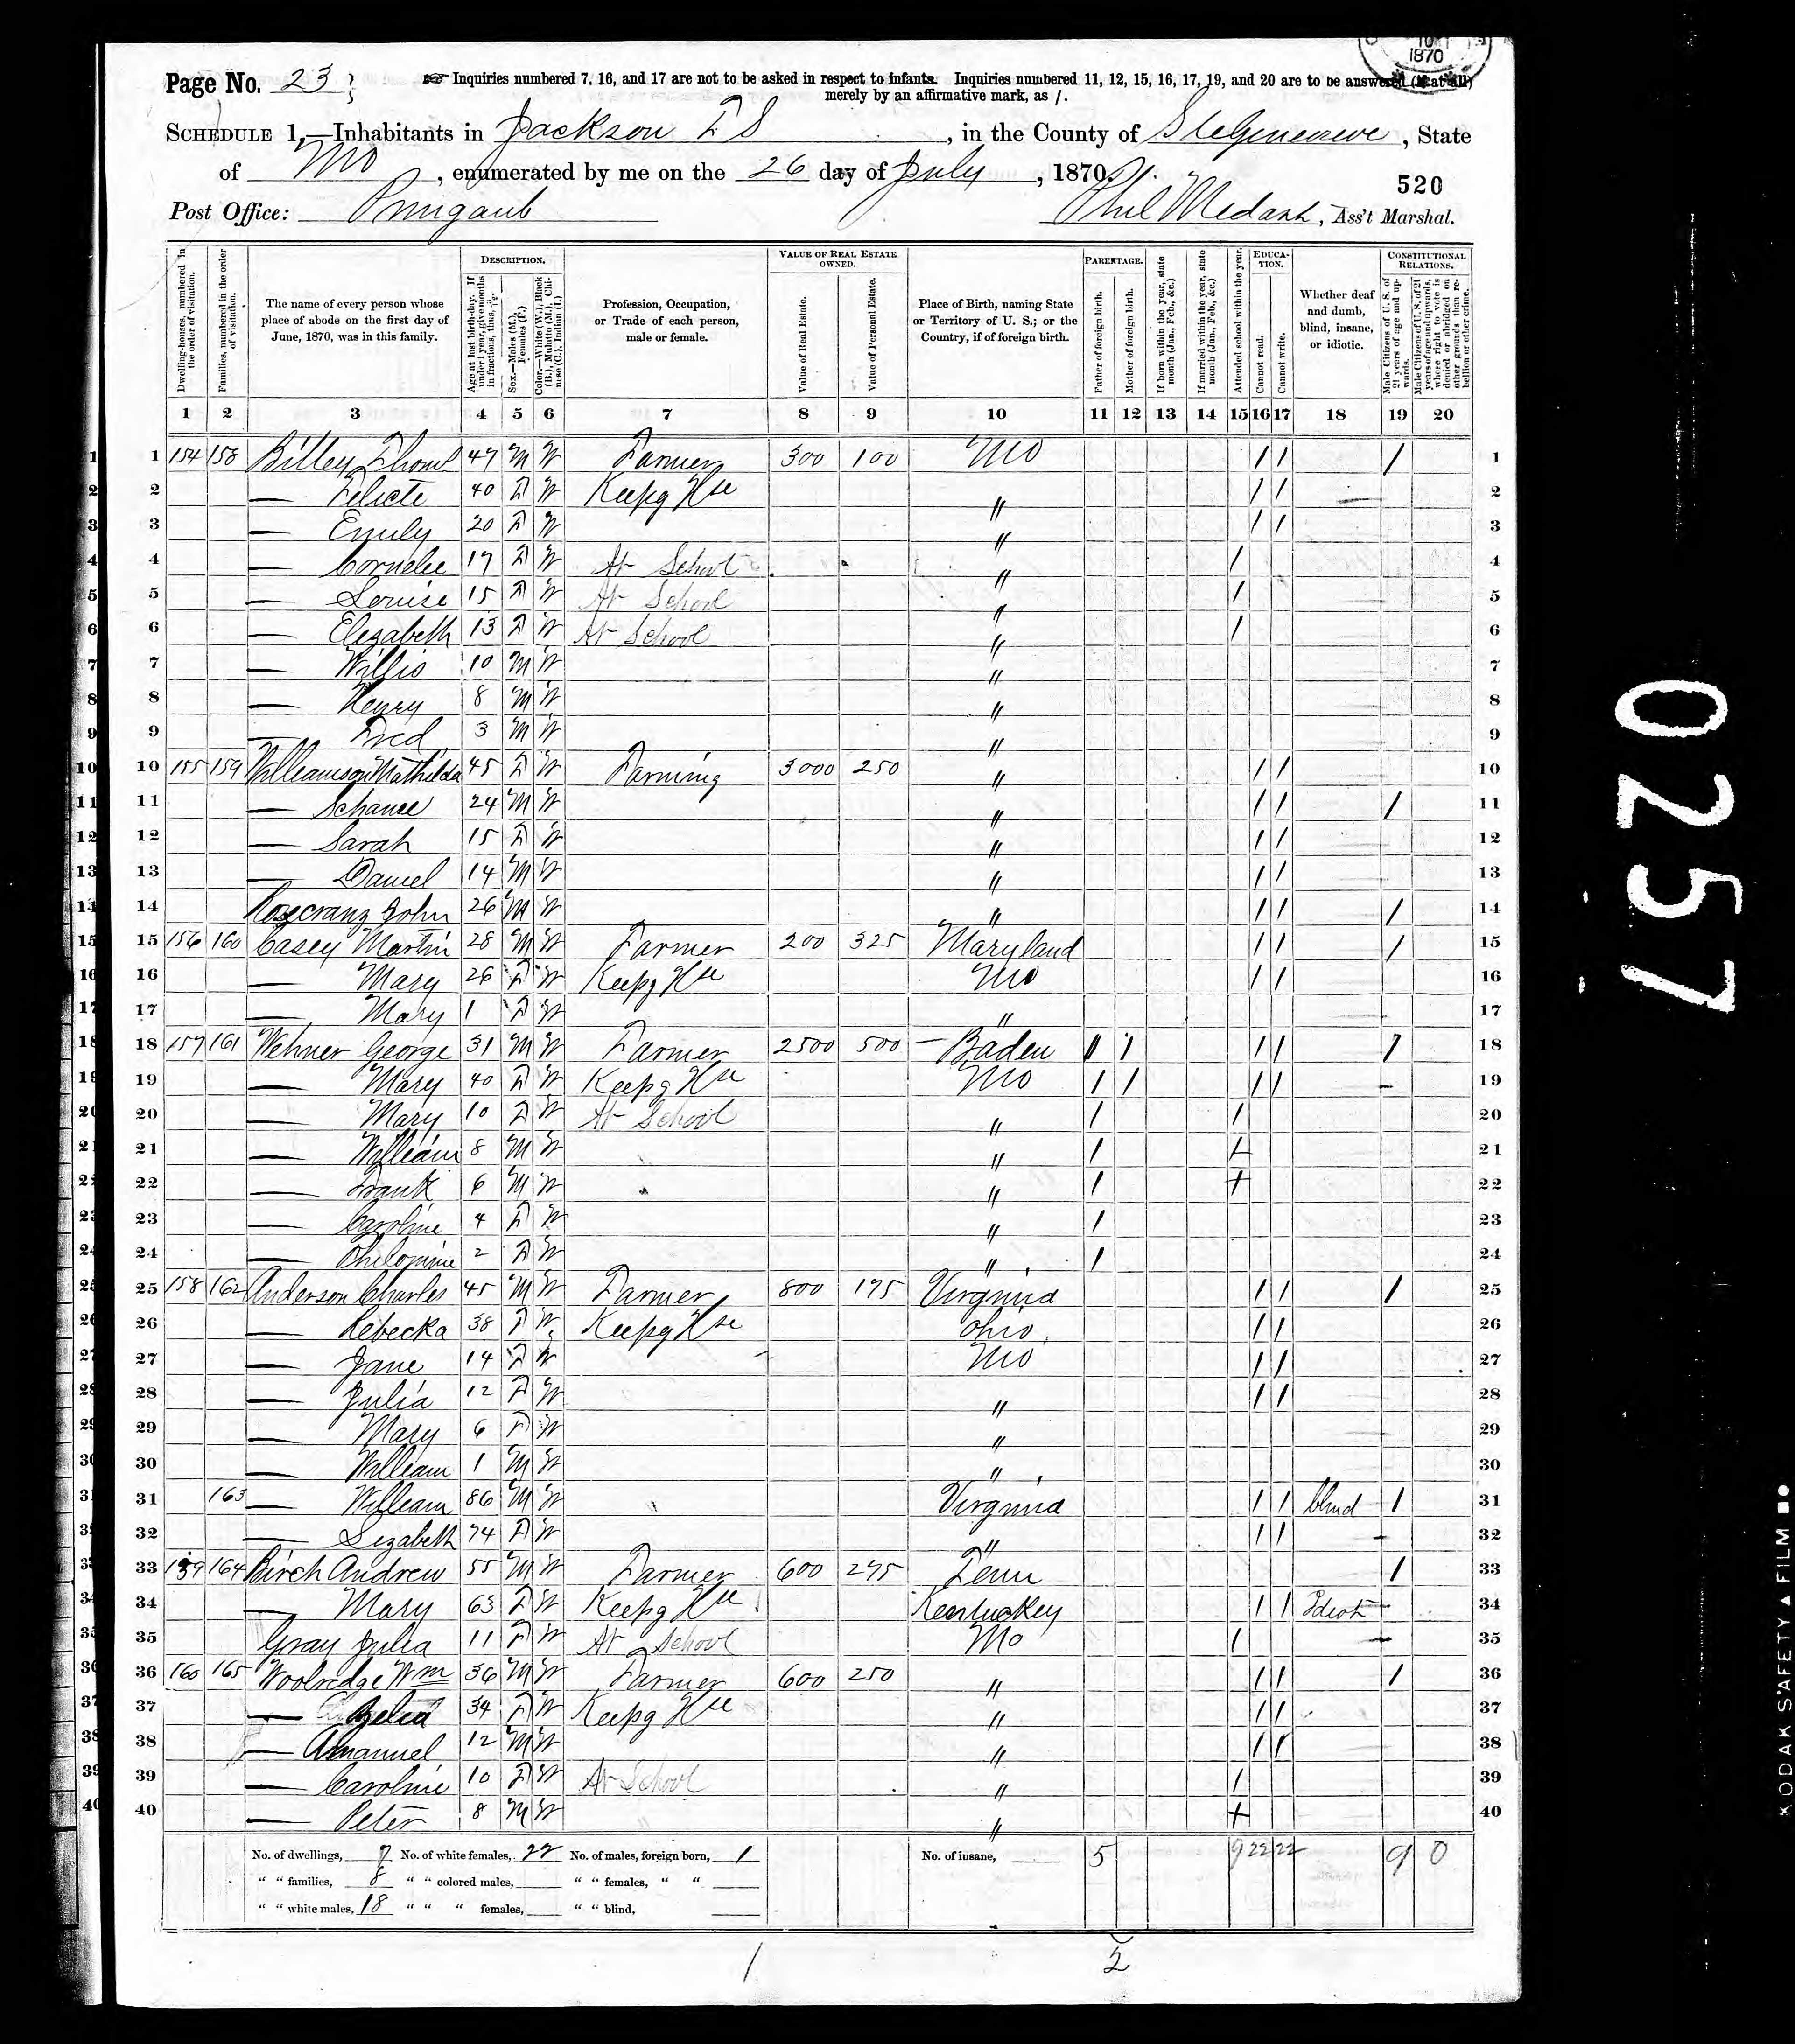 10
1870
Page No. 23
Inquiries numbered 7, 16, and 17 are not to be asked in respect to infants. Inquiries numbered 11, 12, 15, 16, 17, 19, and 20 are to be answered (if at all)
merely by an affirmative mark, as /.
SCHEDULE 1.—Inhabitants in Jackson T S, in the County of Ste Genevieve, State
of Mo, enumerated by me on the 26 day of July, 1870.
520
Post Office: Phil, Ass't Marshal.
Dwelling-houses, numbered in the order of visitation.
Families, numbered in the order of visitation.
The name of every person whose place of abode on the first day of June, 1870, was in this family.
DESCRIPTION.
Age at last birth-day. If under 1 year, give months in fractions, thus, 3/12.
Sex.—Males (M.), Females (F.)
Color.—White (W.), Black (B.), Mulatto (M.), Chinese (C.), Indian (I.)
Profession, Occupation, or Trade of each person, male or female.
VALUE OF REAL ESTATE OWNED.
Value of Real Estate.
Value of Personal Estate.
Place of Birth, naming State or Territory of U. S.; or the Country, if of foreign birth.
PARENTAGE.
Father of foreign birth.
Mother of foreign birth.
If born within the year, state month (Jan., Feb., &c.)
If married within the year, state month (Jan., Feb., &c.)
Attended school within the year.
EDUCATION.
Cannot read.
Cannot write.
Whether deaf and dumb, blind, insane, or idiotic.
CONSTITUTIONAL RELATIONS.
Male Citizens of U. S. of 21 years of age and upwards.
Male Citizens of U. S. of 21 years of age and upwards, where right to vote is denied or abridged on other grounds than rebellion or other crime.
1 2 3 4 5 6 7 8 9 10 11 12 13 14 15 16 17 18 19 20
1 154 158 Billey Thoms 47 M W Farmer 300 100 Mo / / / 1
2 — Felicte 40 F W Keepg Hse " / / 2
3 — Emily 20 F W " / / 3
4 — Cornelie 17 F W At School " / 4
5 — Louise 15 F W At School " / 5
6 — Elizabeth 13 F W At School " / 6
7 — Willis 10 M W " 7
8 — Henry 8 M W " 8
9 — Fred 3 M W " 9
10 155 159 Williamson Mathilda 45 F W Farming 3000 250 " / / 10
11 — 24 M W " / / / 11
12 — Sarah 15 F W " / / 12
13 — Daniel 14 M W " / / 13
14 Rosecranz John 26 M W " / / / 14
15 156 160 Casey Martin 28 M W Farmer 200 325 Maryland / / / 15
16 — Mary 26 F W Keepg Hse Mo / / 16
17 — Mary 1 F W " 17
18 157 161 Wehner George 31 M W Farmer 2500 500 — Baden / / / / / 18
19 — Mary 40 F W Keepg Hse Mo / / / / - 19
20 — Mary 10 F W At School " / / 20
21 — William 8 M W " / + 21
22 — Frank 6 M W " / + 22
23 — Caroline 4 F W " / 23
24 — Philomine 2 F W " / 24
25 158 162 Anderson Charles 45 M W Farmer 800 175 Virginia / / / 25
26 — Rebecka 38 F W Keepg Hse Ohio / / 26
27 — Jane 14 F W Mo / / 27
28 — Julia 12 F W " / / 28
29 — Mary 6 F W " 29
30 — William 1 M W " 30
31 163 — William 86 M W Virginia / / blind / 31
32 — Lizabeth 74 F W " / / - 32
33 159 164 Birch Andrew 55 M W Farmer 600 275 Tenn / 33
34 — Mary 63 F W Keepg Hse Kentuckey / / Idiot - 34
35 Gray Julia 11 F W At School Mo / - 35
36 160 165 Woolridge Wm 36 M W Farmer 600 250 " / / / 36
37 — 34 F W Keepg Hse " / / 37
38 — Amanuel 12 M W " / / 38
39 — Caroline 10 F W At School " / 39
40 — Peter 8 M W " + 40
No. of dwellings, 7 No. of white females, 22 No. of males, foreign born, 1 No. of insane, 5 9 22 22 9 0
" " families, 8 " " colored males, " " females, " "
" " white males, 18 " " " females, " " blind,
1 2
0257
KODAK SAFETY ▲ FILM